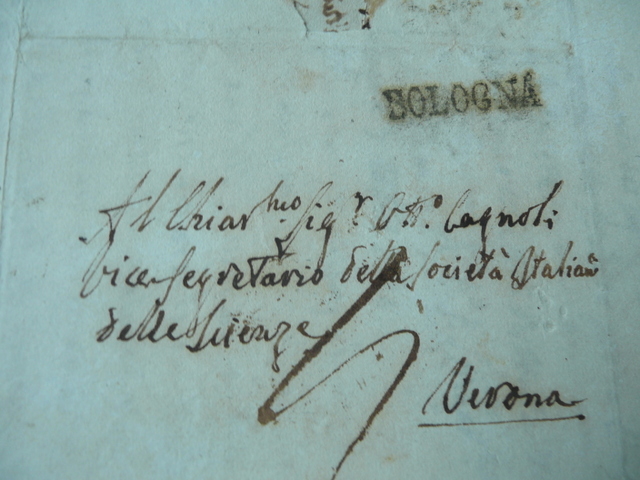 BOLOGNA
Al Chiar.mo Sig.r Ott.o Cagnoli
Vice Segretario della Società Italiana
delle Scienze
Verona